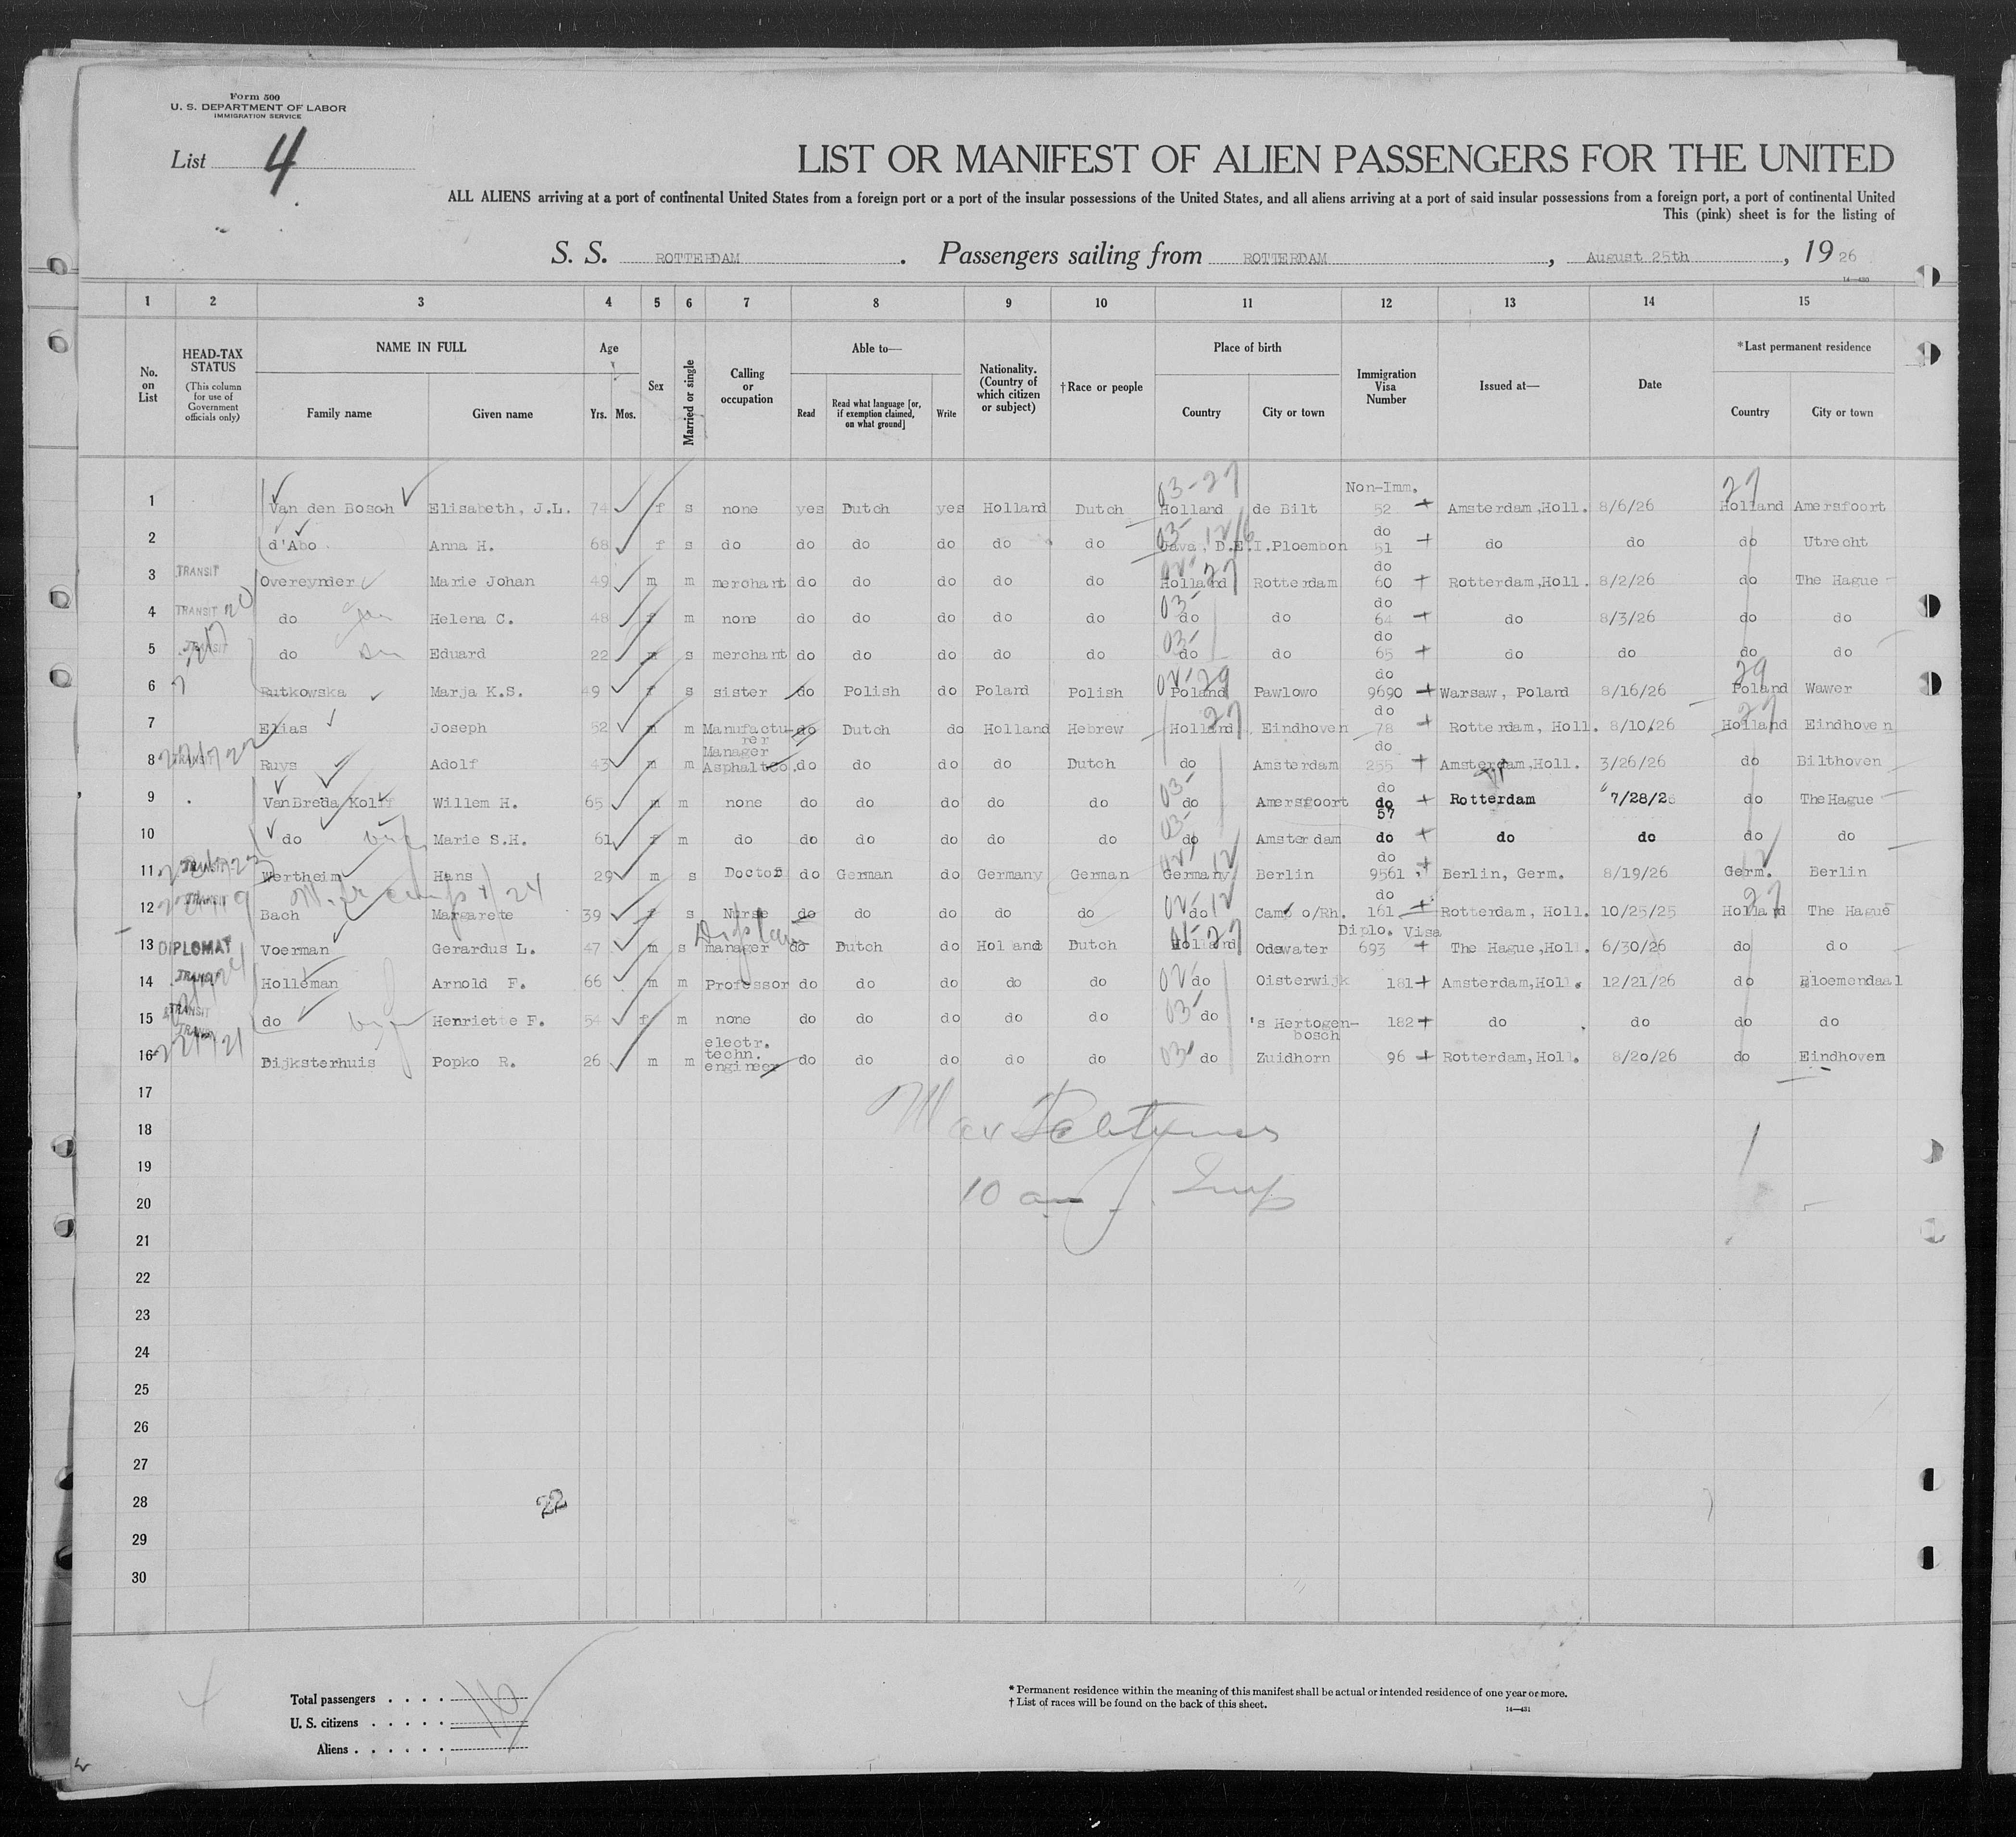 Form 500
U. S. DEPARTMENT OF LABOR
IMMIGRATION SERVICE
List 4
LIST OR MANIFEST OF ALIEN PASSENGERS FOR THE UNITED
ALL ALIENS arriving at a port of continental United States from a foreign port or a port of the insular possessions of the United States, and all aliens arriving at a port of said insular possessions from a foreign port, a port of continental United
This (pink) sheet is for the listing of
S. S. ROTTERDAM . Passengers sailing from ROTTERDAM , August 25th , 19 26
14—430
1 2 3 4 5 6 7 8 9 10 11 12 13 14 15
No. on List
HEAD-TAX STATUS (This column for use of Government officials only)
NAME IN FULL
Family name Given name
Age
Yrs. Mos.
Sex
Married or single
Calling or occupation
Able to—
Read Read what language [or, if exemption claimed, on what ground] Write
Nationality. (Country of which citizen or subject)
†Race or people
Place of birth
Country City or town
Immigration Visa Number
Issued at—
Date
*Last permanent residence
Country City or town
03-27 27
Non-Imm.
1 Van den Bosch Elisabeth, J.L. 74 f s none yes Dutch yes Holland Dutch Holland de Bilt 52 + Amsterdam,Holl. 8/6/26 Holland Amersfoort
do
2 d'Abo Anna H. 68 f s do do do do do do Java, D.E.I.Ploembon 51 + do do do Utrecht
do
3 TRANSIT Overeynder Marie Johan 49 m m merchant do do do do do Holland Rotterdam 60 + Rotterdam,Holl. 8/2/26 do The Hague
do
4 TRANSIT do Helena C. 48 f m none do do do do do do do 64 + do 8/3/26 do do
do
5 TRANSIT do Eduard 22 m s merchant do do do do do do do 65 + do do do do
do
6 Rutkowska Marja K.S. 49 f s sister do Polish do Poland Polish Poland Pawlowo 9690 + Warsaw, Poland 8/16/26 Poland Wawer
do
7 Elias Joseph 52 m m Manufacturer do Dutch do Holland Hebrew Holland Eindhoven 78 + Rotterdam, Holl. 8/10.26 Holland Eindhoven
do
8 TRANSIT Ruys Adolf 43 m m Manager Asphaltco. do do do do Dutch do Amsterdam 255 + Amsterdam,Holl. 3/26/26 do Bilthoven
do
9 VanBreda Kolff Willem H. 65 m m none do do do do do do Amersfoort do + Rotterdam 7/28/26 do TheHague
57
10 do wife Marie S.H. 61 f m do do do do do do do Amsterdam do + do do do do
do
11 TRANSIT Wertheim Hans 29 m s Doctor do German do Germany German Germany Berlin 9561 + Berlin, Germ. 8/19/26 Germ. Berlin
do
12 TRANSIT Bach Margarete 39 f s Nurse do do do do do do Camp o/Rh. 161 + Rotterdam, Holl. 10/25/25 Holland The Hague
Diplo. Visa
13 DIPLOMAT Voerman Gerardus L. 47 m s manager do Dutch do Holland Dutch Holland Odewater 693 + The Hague,Holl. 6/30/26 do do
14 TRANSIT Holleman Arnold F. 66 m m Professor do do do do do do Oisterwijk 181+ Amsterdam,Holl. 12/21/26 do Bloemendaal
15 TRANSIT do wife Henriette F. 54 f m none do do do do do do 's Hertogenbosch 182+ do do do do
16 TRANSIT Dijksterhuis Popko R. 26 m m electr. techn. engineer do do do do do do Zuidhorn 96 + Rotterdam,Holl. 8/20/26 do Eindhoven
17
18
19
10 am Insp
20
21
22
23
24
25
26
27
28 22
29
30
Total passengers . . . . 16
U. S. citizens . . . . .
Aliens . . . . . .
* Permanent residence within the meaning of this manifest shall be actual or intended residence of one year or more.
† List of races will be found on the back of this sheet.
14—431